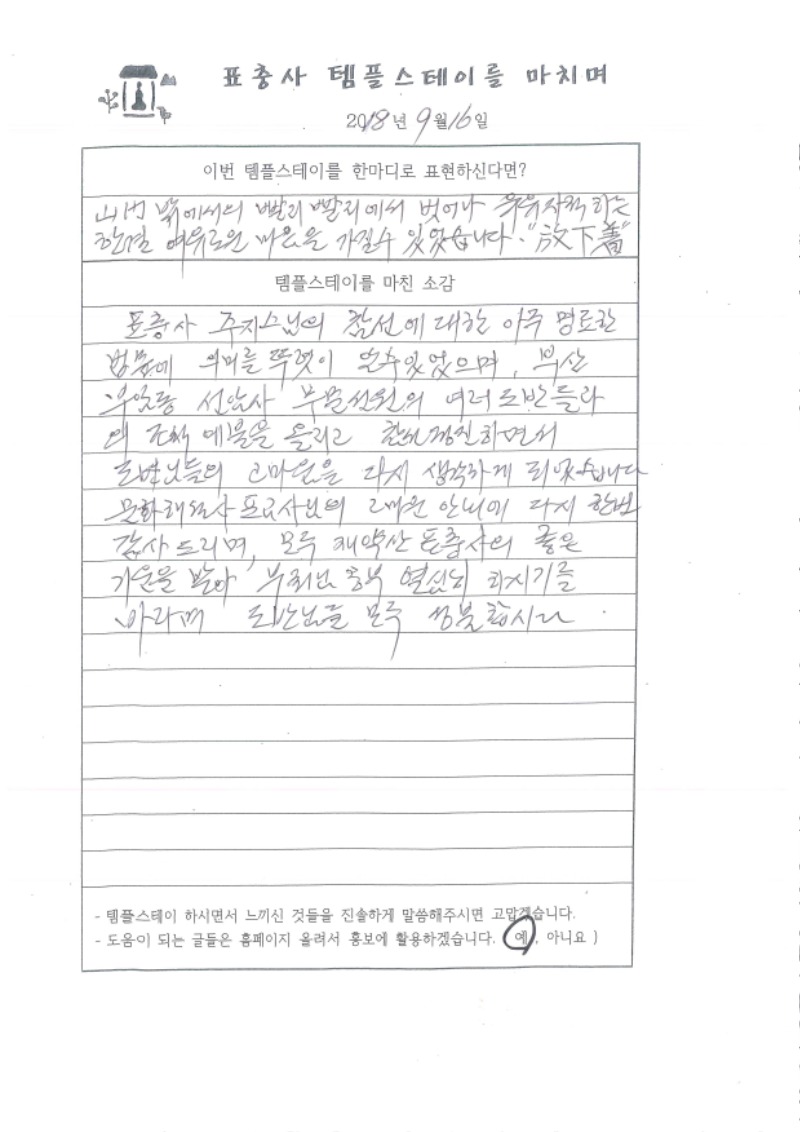 표충사 템플스테이를 마치며
2018년 9월 16일
이번 템플스테이를 한마디로 표현하신다면?
山門 밖에서의 빨리 빨리에서 벗어나 유유자적하는
한결 여유로운 마음을 가질수 있었습니다. "放下着"
템플스테이를 마친 소감
표충사 주지스님의 참선에 대한 아주 명료한
법문에 의미를 뚜렷이 알수있었으며, 부산
선암사 선원의 여러 도반들과
의 조석 예불을 올리고 정진하면서
도반님들의 고마움을 다시 생각하게 되었습니다
문화해설사 님의 고마운 안내에 다시 한번
감사드리며, 모두 재약산 표충사의 좋은
기운을 받아 열심히 하시기를
바라며 도반님들 모두 성불합시다.
- 템플스테이 하시면서 느끼신 것들을 진솔하게 말씀해주시면 고맙겠습니다.
- 도움이 되는 글들은 홈페이지 올려서 홍보에 활용하겠습니다. ( 예 , 아니요 )